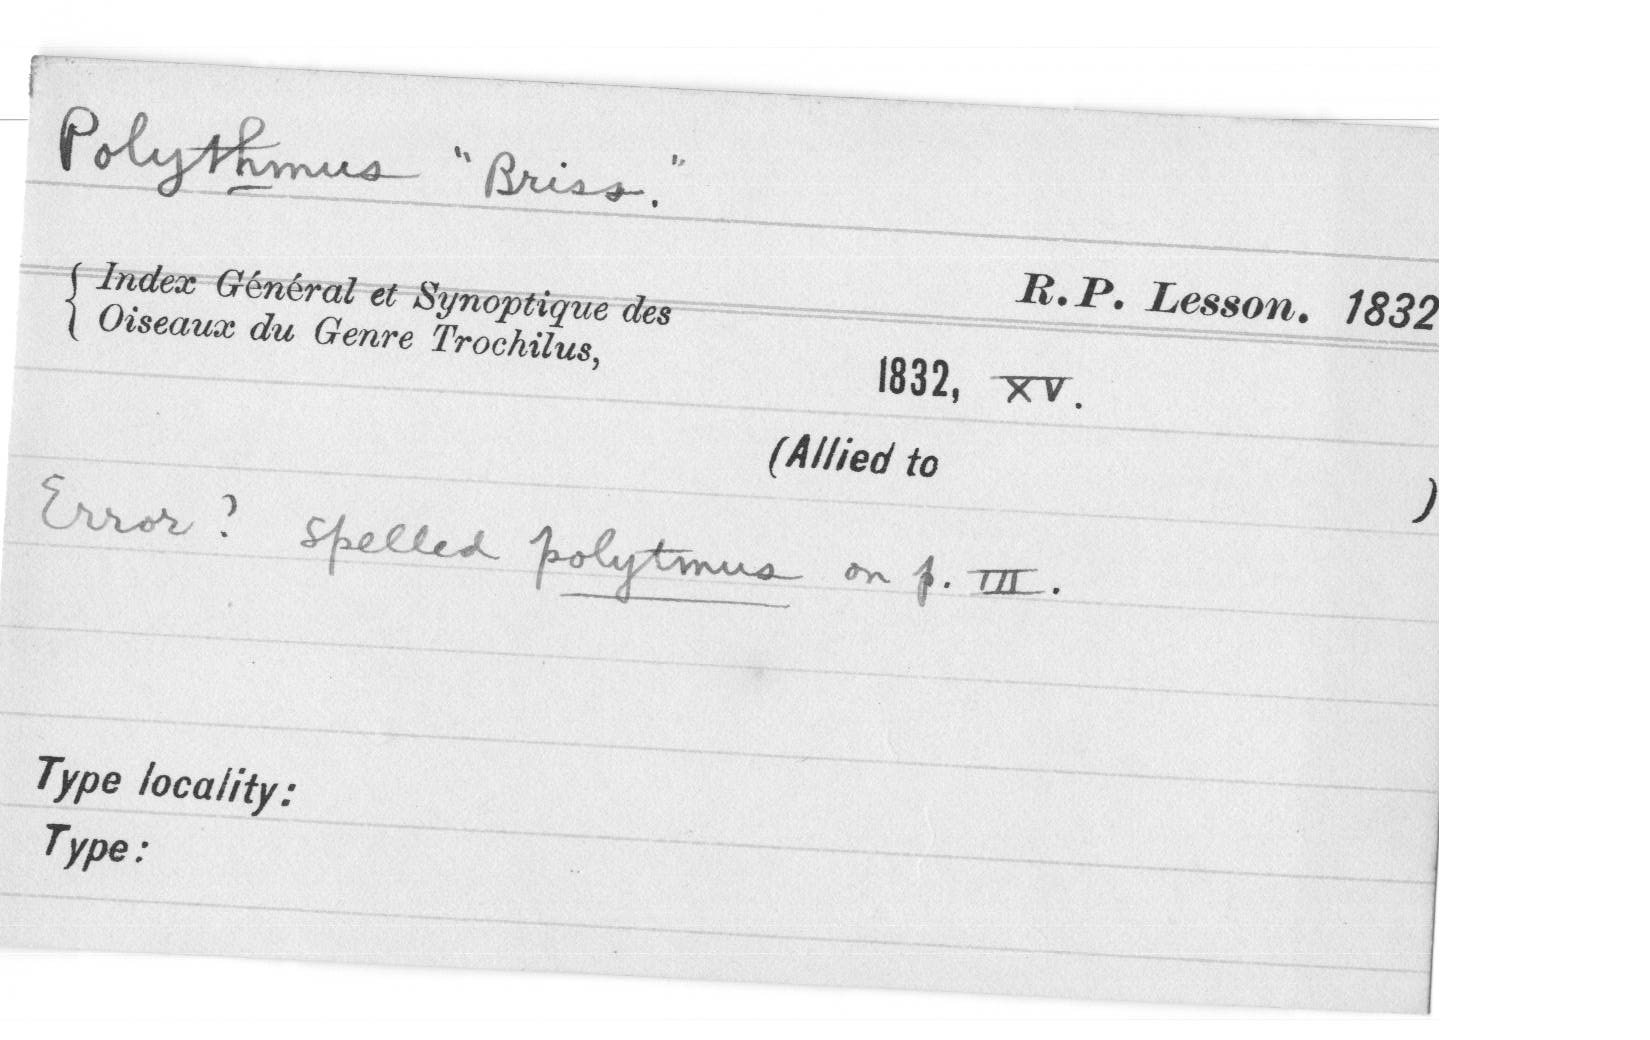 Polythmus "Briss."
{ Index Général et Synoptique des
Oiseaux du Genre Trochilus,
R.P. Lesson. 1832
1832, XV.
(Allied to )
Error? Spelled polytmus on p. III.
Type locality:
Type: